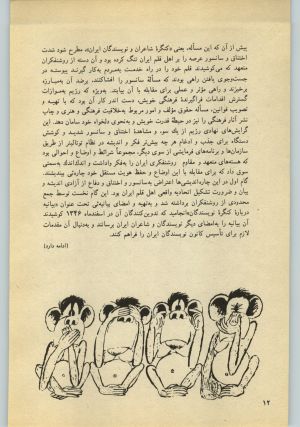 پیش از آن که این مسأله، یعنی «کنگرهٔ شاعران و نویسندگان ایران»، مطرح شود شدت
اختناق و سانسور عرصه را بر اهل قلم ایران تنگ کرده بود و آن دسته از روشنفکران
متعهد که می‌کوشیدند قلم خود را در راه خدمت به‌مردم به‌کار گیرند پیوسته در
جست‌وجوی یافتن راهی بودند که مسألهٔ سانسور را افشاکنند، برضد آن به‌مبارزه
برخیزند و راهی مؤثر و عملی برای مقابله با آن بیابند. به‌ویژه که رژیم به‌موازات
گسترش اقدامات فراگیرندهٔ فرهنگی خویش، دست اندر کار آن بود که با تهیه و
تصویب قوانین، مسألهٔ حقوق مؤلف و امور مربوط به‌خلاقیت فرهنگی و هنری و چاپ
نشر آثار فرهنگی را نیز در حیطهٔ قدرت خویش و به‌نحوی دلخواه خود سامان دهد. این
گرایش‌های نهادی رژیم از یك سو، و مشاهدهٔ اختناق و سانسور شدید و کوشش
دستگاه برای جذب و ادغام هر چه بیشتر فکر و اندیشه در نظام توتالیتر از طریق
سازمان‌ها و برنامه‌های فرمایشی از سوی دیگر، مجموعاً شرائط و اوضاع و احوالی بود
که هسته‌های متعهد و مقاوم روشنفکری ایران را به‌فکر واداشت و اندك‌اندك به‌سمتی
سوق داد که برای مقابله با این اوضاع و حفظ هویت مستقل خود چاره‌ئی بیندیشند.
گام اول در این چاره‌اندیشی‌ها اعتراض به‌سانسور و اختناق و دفاع از آزادی اندیشه و
بیان و ضرورت تشکیل اتحادیه واقعی اهل قلم ایران بود. این گام نخست توسط جمع
محدودی از روشنفکران برداشته شد و به‌تهیه و امضای بیانیه‌ئی تحت عنوان «بیانیه
دربارهٔ کنگرهٔ نویسندگان» انجامید که تدوین‌کنندگان آن در اسفندماه ۱۳۴۶ کوشیدند
آن بیانیه را به‌امضای دیگر نویسندگان و شاعران ایران برسانند و به‌دنبال آن مقدمات
لازم برای تأسیس کانون نویسندگان ایران را فراهم کنند.
(ادامه دارد)
۱۲